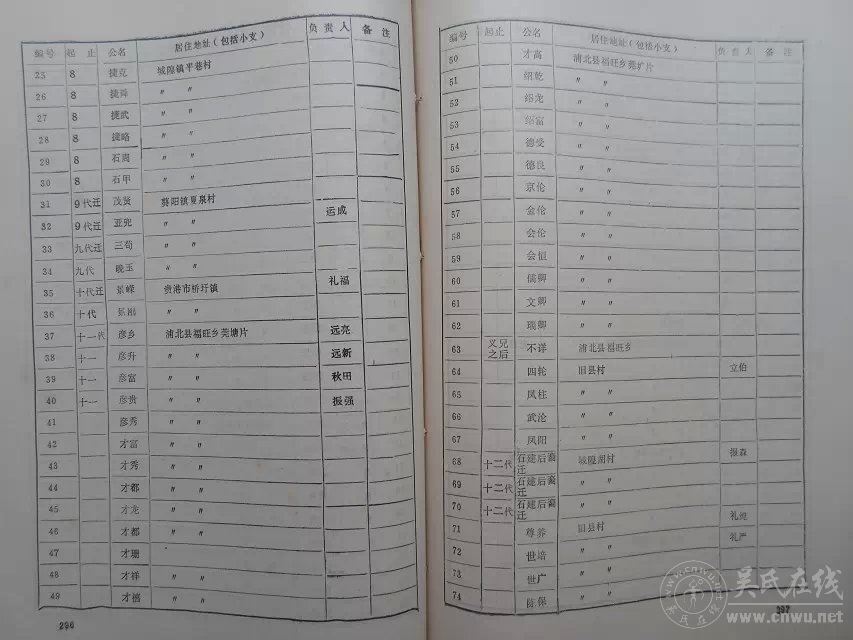 编号 起止 公名 居住地址（包括小支） 负责人 备注
25 8 捷克 城隍镇平巷村
26 8 捷舜 〃 〃
27 8 捷武 〃 〃
28 8 捷略 〃 〃
29 8 石周 〃 〃
30 8 石甲 〃 〃
31 9代迁 茂贤 葵阳镇夏泉村
运成
32 9代迁 亚兜 〃 〃
33 九代迁 三苟 〃 〃
34 九代 晚玉 〃 〃
35 十代迁 景嵘 贵港市桥圩镇 礼福
36 十代 〃 〃
37 十一代 彦乡 浦北县福旺乡莞塘片 远亮
38 十一 彦升 〃 〃 远新
39 十一 彦富 〃 〃 秋田
40 十一 彦贵 〃 〃 振强
41 彦秀 〃 〃
42 才富 〃 〃
43 才秀 〃 〃
44 才都 〃 〃
45 才龙 〃 〃
46 才都 〃 〃
47 才珊
48 才祥 〃 〃
49 才禧 〃 〃
296
编号 起止 公名 居住地址（包括小支） 负责人 备注
50 才高 浦北县福旺乡莞圹片
51 绍乾 〃 〃
52 绍龙 〃 〃
53 绍富 〃 〃
54 德受 〃 〃
55 德良 〃 〃
56 京伦 〃 〃
57 金伦 〃 〃
58 会伦 〃 〃
59 会恒 〃 〃
60 儒卿 〃 〃
61 文卿 〃 〃
62 瑞卿 〃 〃
63 义兄之后 不详 浦北县福旺乡
64 四轮 旧县村 立伯
65 凤柱 〃 〃
66 武沦 〃 〃
67 凤阳 〃 〃
振森
68 十二代 石建后裔迁 城隍湖村
69 十二代 石建后裔迁 〃 〃
70 十二代 石建后裔迁 〃 〃
礼纯
71 尊养 旧县村
礼严
72 世培 〃 〃
73 世广 〃 〃
74 陈保 〃 〃
297
吴氏在线
www.cnwu.net